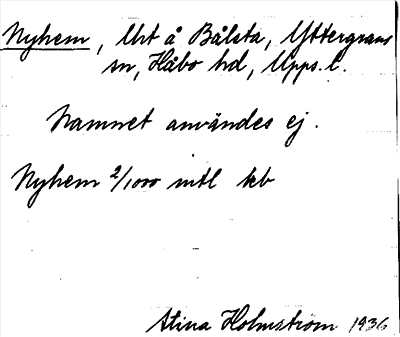 Nyhem, Urt å Bålsta, Yttergrans
sn, Håbo hd, Upps. l.
Namnet användes ej.
Nyhem 2/1000 mtl kb
Stina Holmström 1936